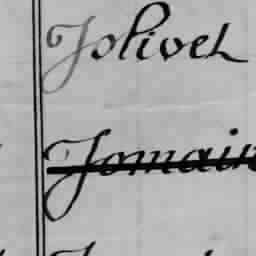 Jolivet
Jomain